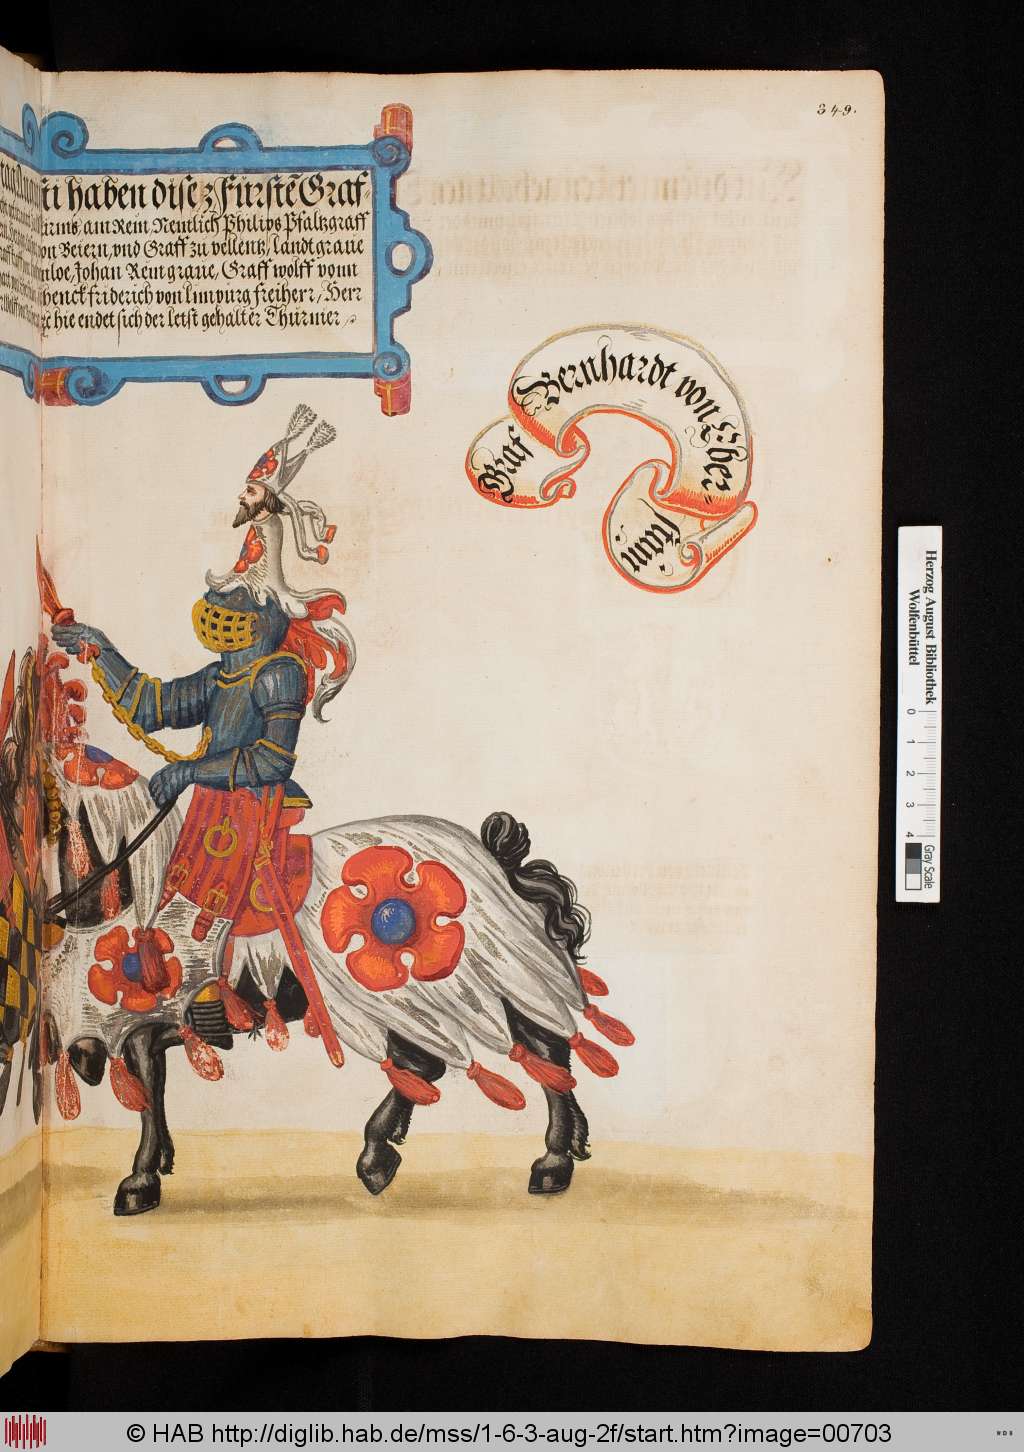 349.
ti haben dise z Fürstē Graf-
urms, am Rein, Nemlich Philips Pfaltzgraff
von Beiern, vnd Graff zu vellentz, landtgraue
nloe, Johan Reingraue, Graff wolff vonn
henck friderich von limpurg freiherr, Herr
hie endet sich der letst gehalter Thurnier
Graf Bernhardt von Eber-
stain
Herzog August Bibliothek
Wolfenbüttel
0 1 2 3 4
Gray Scale
© HAB http://diglib.hab.de/mss/1-6-3-aug-2f/start.htm?image=00703